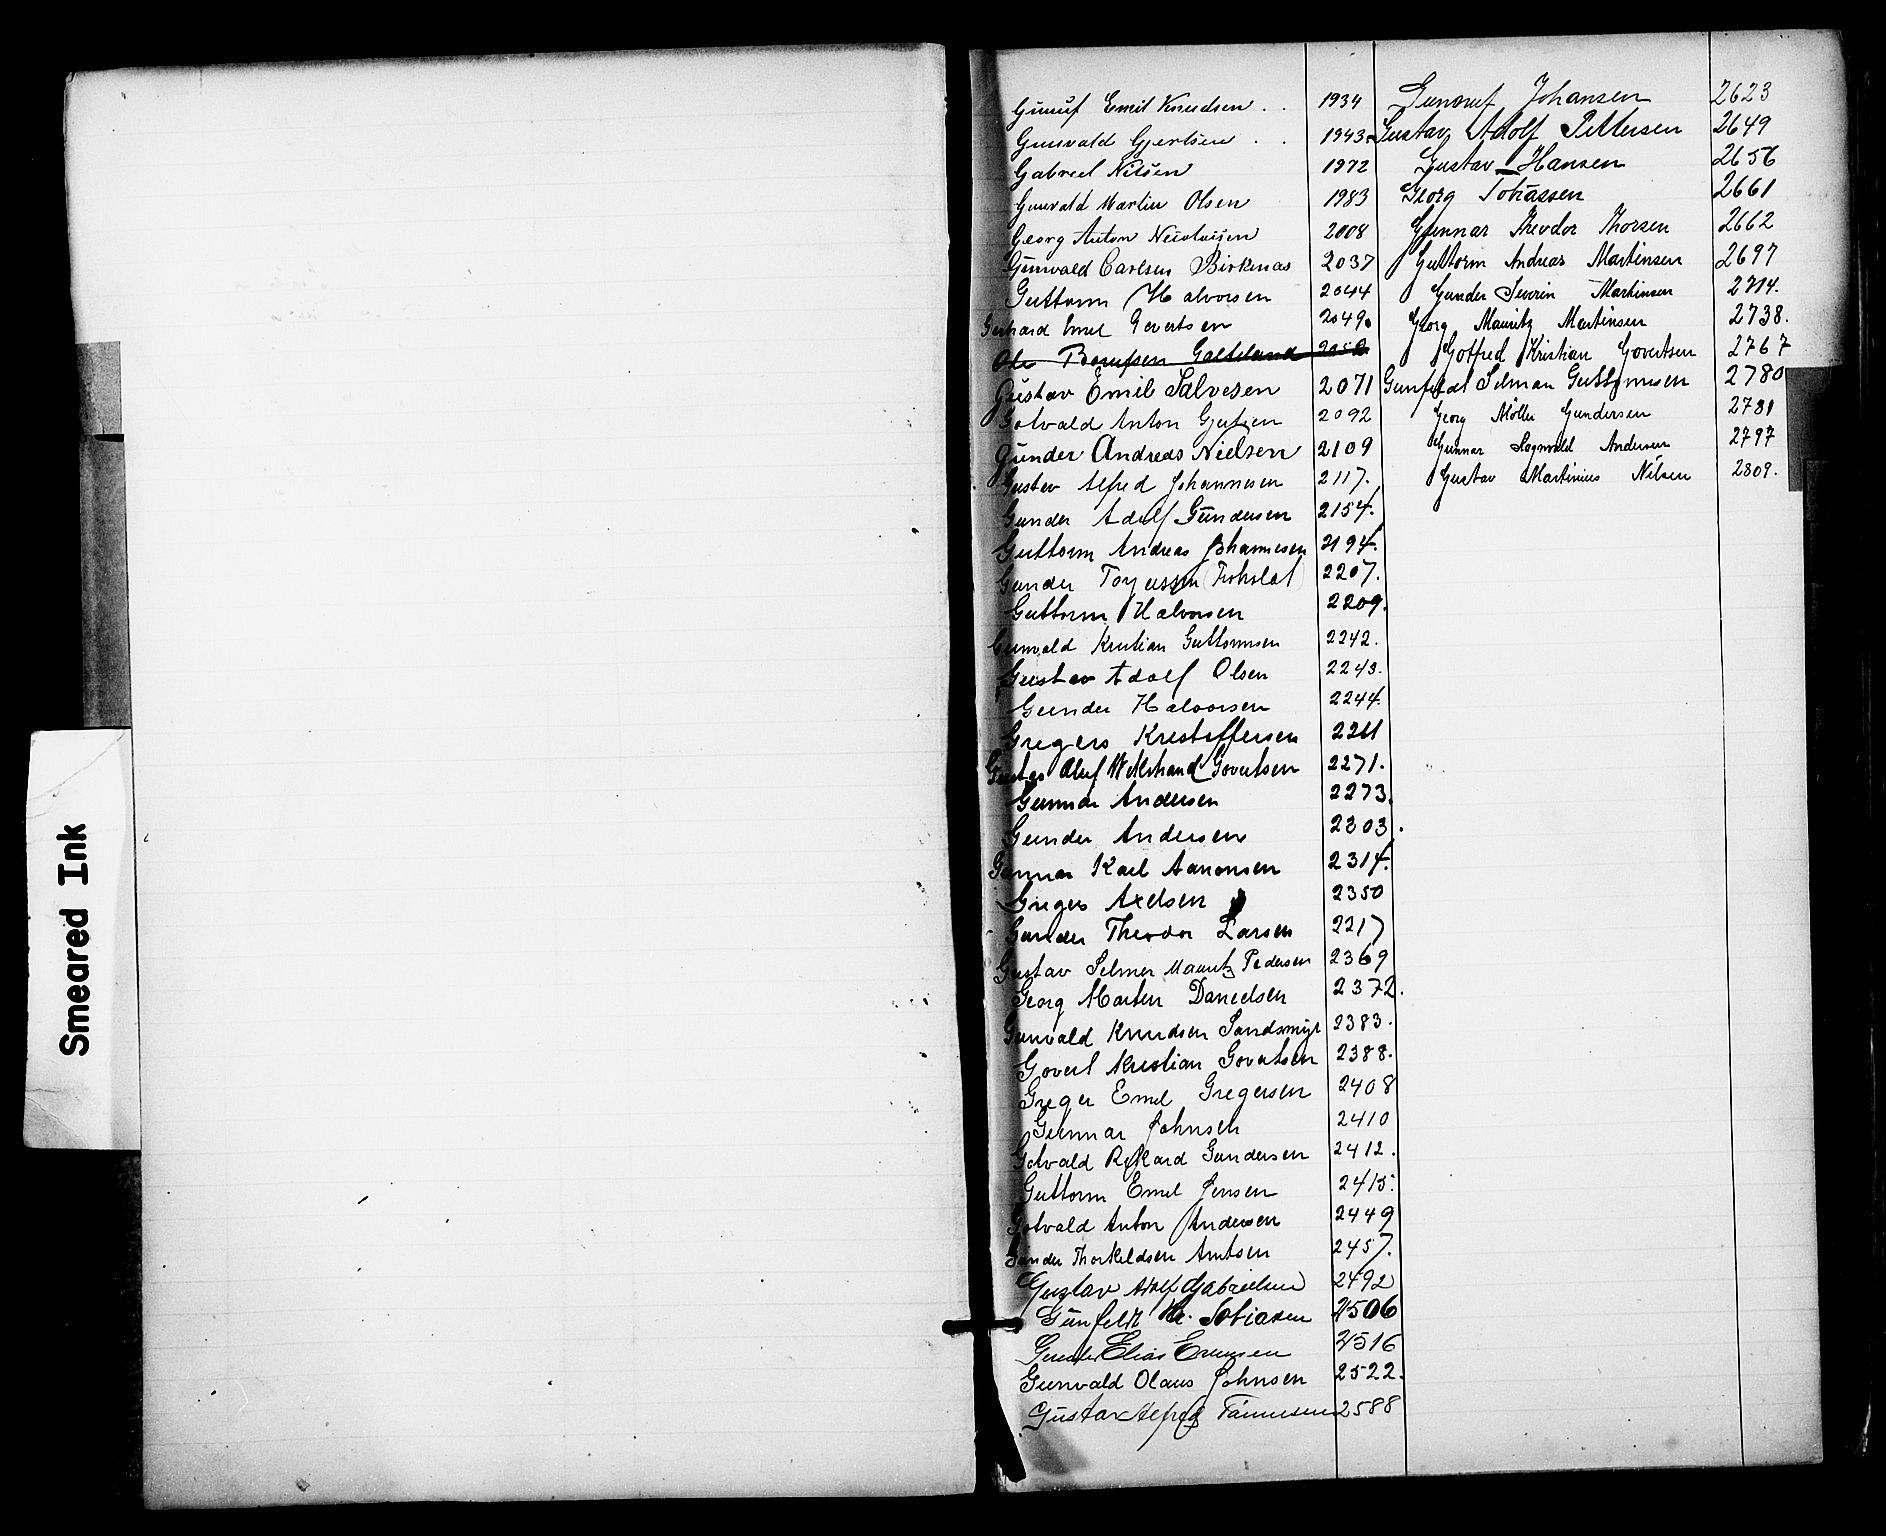 Smeared Ink
Emil Knudsen 1934
Gunvald Gjertsen 1943
Gabriel Nilsen 1972
Gunvald Martin Olsen 1983
Georg Anton 2008
Gunvald Carlsen Birkenas 2037
Guttorm Halvorsen 2044
Gerhard Emil Gevertsen 2049
Ole
Gustav Emil Salvesen 2071
Gotvald Anton 2092
Gunder Andreas Nielsen 2109
Gustav Alfred Johannesen 2117.
Gunder Adolf Gundersen 2154.
Guttorm Andreas Johannesen 2194.
Gunder 2207.
Guttorm Halvorsen 2209.
Gunvald Kristian Guttormsen 2242.
Gustav Adolf Olsen 2243.
Gunder Halvorsen 2244.
Gregers Kristoffersen
Gustav Oluf Govertsen 2271.
Gunnar Andersen 2273.
Gunder Andersen 2303.
Gunnar Karl Aanonsen 2314.
Gregers Axelsen 2350
Gunder Theodor Larsen 2217
Gustav Selmer Mauritz Pedersen 2369
Georg Marten Danielsen 2372.
Gunvald Knudsen Sandsmyr 2383.
Govert Kristian Govertsen 2388.
Greger Emil Gregersen 2408
Gunnar Johnsen 2410
Gotvald Rikard Gundersen 2412.
Guttorm Emil Jensen 2415.
Gotvald Anton Andersen 2449
Gunder Thorkildsen Arntsen 2457.
Gustav Adolf Gabrielsen 2492
Gunfeldt Kr. Tobiasen 2506
Gunder Elias 2516
Gunvald Olaus Johnsen 2522.
Gustav Alfred Tønnesen 2588
Johansen 2623
Gustav Adolf Pettersen 2649
Gustav Hansen 2656
Georg Tobiassen 2661
Gunnar Theodor Thorsen 2662
Guttorm Andreas Martinsen 2697
Gunder Severin Martinsen 2714.
Georg Mauritz Martinsen 2738.
Gotfred Kristian Govertsen 2767
Selman Guttormsen 2780
Georg Möller Gundersen 2781
Gunnar Andersen 2797
Gustav Martinius Nilsen 2809.